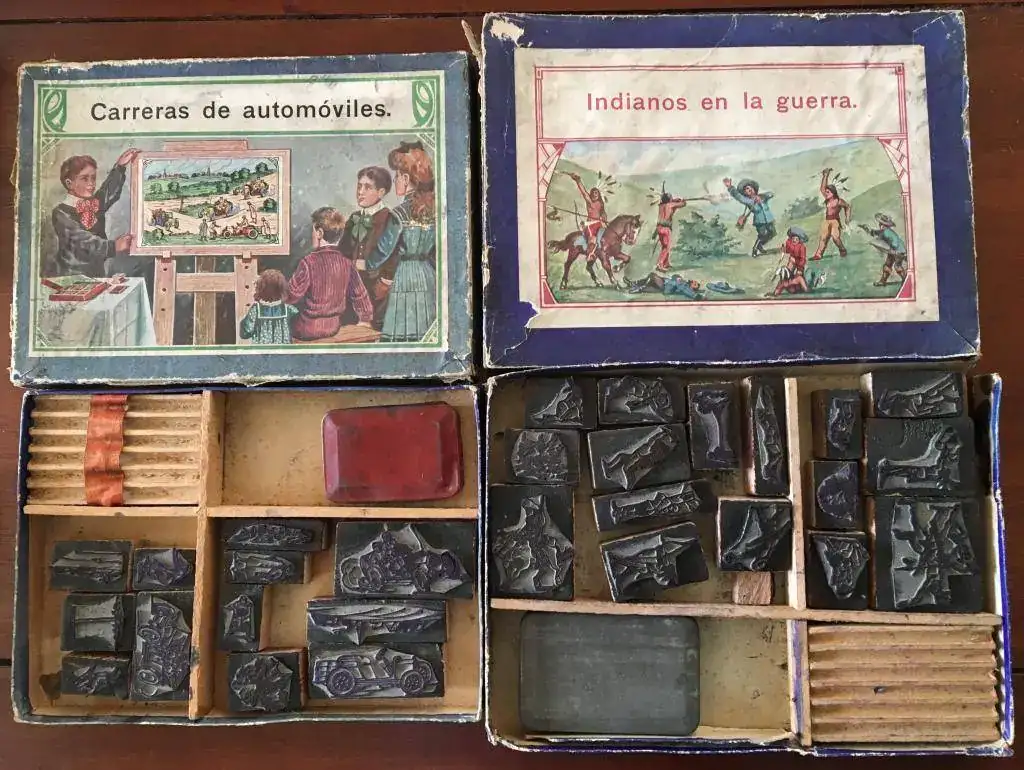 Carreras de automóviles.
Indianos en la guerra.